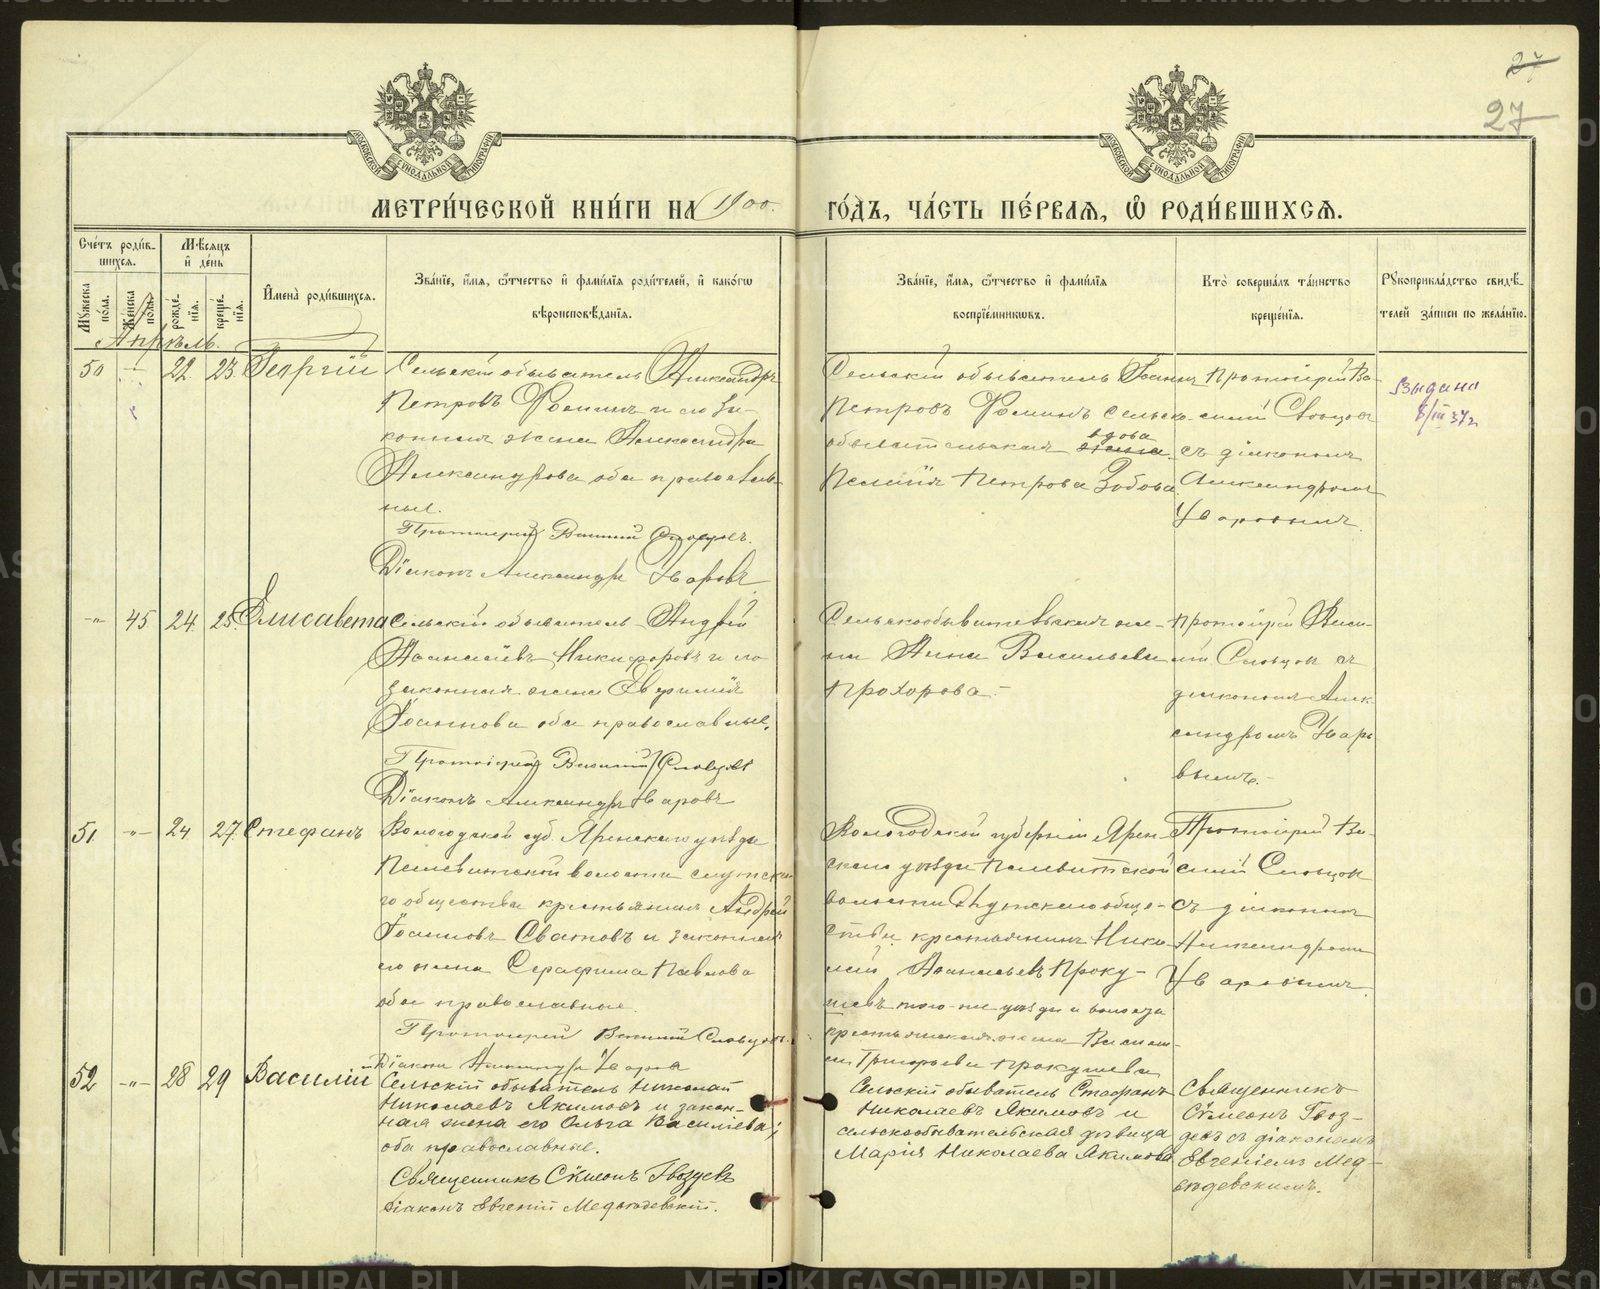 27
27
МЕТРИ́ЧЕСКОЙ КНИ́ГИ НА 1900
ГО́ДЪ, ЧА́СТЬ ПЕ́РВАЯ, Ѿ РОДИ́ВШИХСЯ.
Сче́тъ роди́в-
шихся.
Мѣ́сяцъ
и́ де́нь
Мужеска
по́ла.
Же́нска
по́ла.
рожде́-
нїя.
креще́-
нїя.
И҆мена̀ роди́вшихся.
Зва́нїе, и҆́мя, ѻ҆́тчество и҆ фами́лїя роди́телей, и҆ како́гѡ
вѣроисповѣ́данїя.
Зва́нїе, и҆́мя, ѻ҆́тчество и҆ фами́лїя
воспрїе́мникѡвъ.
Кто̀ соверша́лъ та́инство
креще́нїя.
Рукоприкла́дство свидѣ́-
телей за́писи по жела́нїю.
Апрѣль.
50
22
23
Георгій
Сельскій обыватель Александръ
Петровъ Фоминъ и его за-
конная жена Александра
Александрова оба православ-
ные.
Протоиерей Василий Словцовъ.
Діаконъ Александръ Уваровъ
Сельскій обыватель Іоаннъ
Петровъ Фоминъ сельско-
обывательская вдова
жена
Пелагія Петрова Зобова
Протоіерей Ва-
силій Словцовъ
съ діакономъ
Александромъ
Уваровымъ.
Выдано
8/III 37г
-"-
45
24
25
Елисавета
Сельскій обыватель Андрей
Аѳанасіевъ Никифоровъ и его
законная жена Евфимія
Іоаннова оба православные.
Протоіерей Василий Словцовъ
Діаконъ Александръ Уваровъ
Сельскообывательская же-
на Анна Васильева
Прохорова.-
Протоіерей Васи-
лій Словцовъ съ
діакономъ Алек-
сандромъ Уваро-
вымъ.-
51
-"-
24
27
Стефанъ
Вологодской губ. Яренскаго уѣзда
волости
общества крестьянинъ Андрей
Іоанновъ Сватовъ и законная
его жена Серафима Павлова
оба православные.
Протоиерей Василий Словцовъ.
Діаконъ Александръ Уваровъ
Вологодской губерніи Ярен-
скаго уѣзда
волости обще-
ства крестьянинъ Нико-
лай Аѳанасьевъ Проку-
шевъ того-же уѣзда и волости
крестьянская жена
Григорьева Прокушева
Протоіерей Ва-
силій Словцовъ
съ діакономъ
Александромъ
Уваровымъ.
52
-"-
28
29
Василій
Сельскій обыватель Николай
Николаевъ Якимовъ и закон-
ная жена его Ольга Василіева;
оба православные.
Священникъ Сѵмеонъ Гвоздевъ
Діаконъ Евгеній Медвѣдевскій.
Сельскій обыватель Стефанъ
Николаевъ Якимовъ и
сельскообывательская дѣвица
Марія Николаева Якимова
Священникъ
Сѵмеонъ Гвоз-
девъ съ діакономъ
Евгеніемъ Мед-
вѣдевскимъ.
METRIKI.GASO-URAL.RU